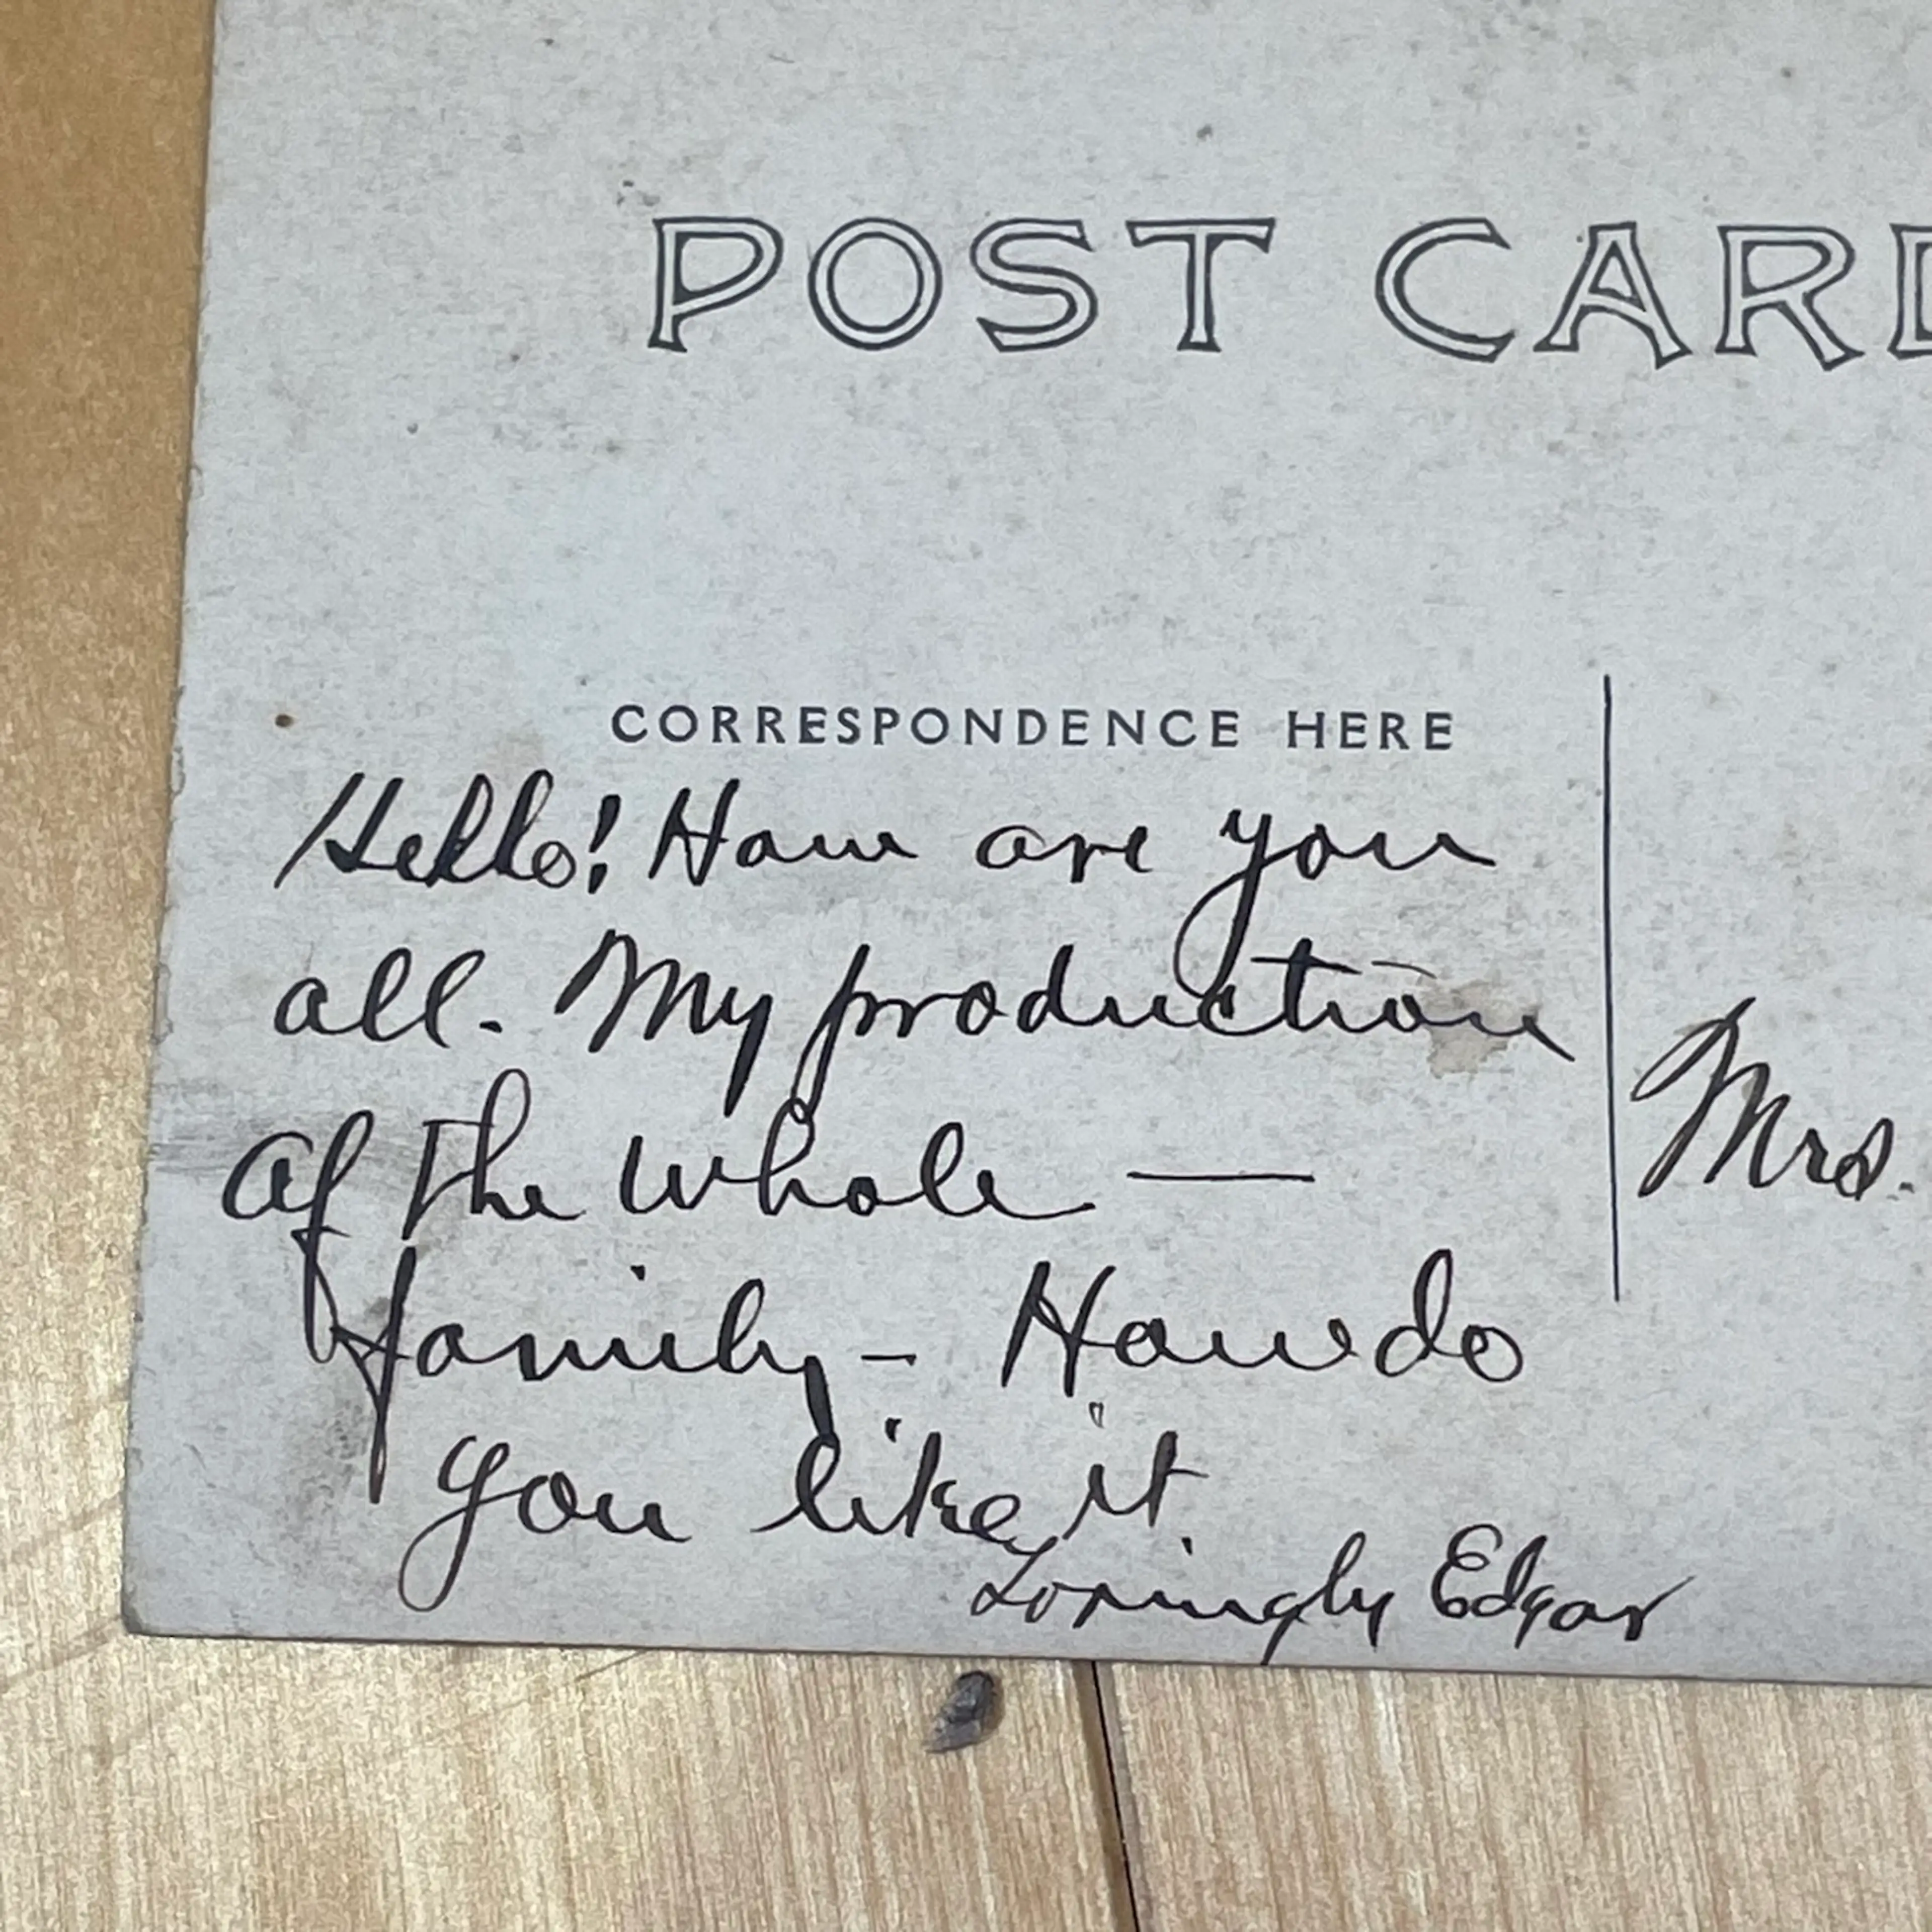 POST CARD
CORRESPONDENCE HERE
Hello! How are you
all. My production
of the whole —
family - How do
you like it
Lovingly Edgar
Mrs.